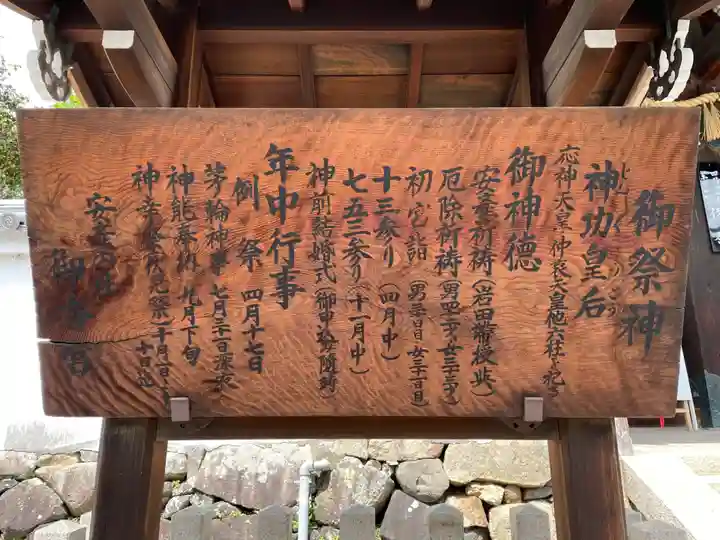 御祭神
神功皇后
じんぐうこうごう
応神天皇仲哀天皇他六社を祀る
御神徳
安産祈祷（岩田帯授与）
厄除祈祷（男四二才・女三三才）
初宮詣（男三十日目・女三十一日目）
十三参り（四月中）
七五三参り（十一月中）
神前結婚式（御申込随時）
年中行事
例祭 四月十七日
茅輪神事 七月三十一日深夜
神能奉納 九月下旬
神幸祭伏見祭（十月
安産の社
御香宮